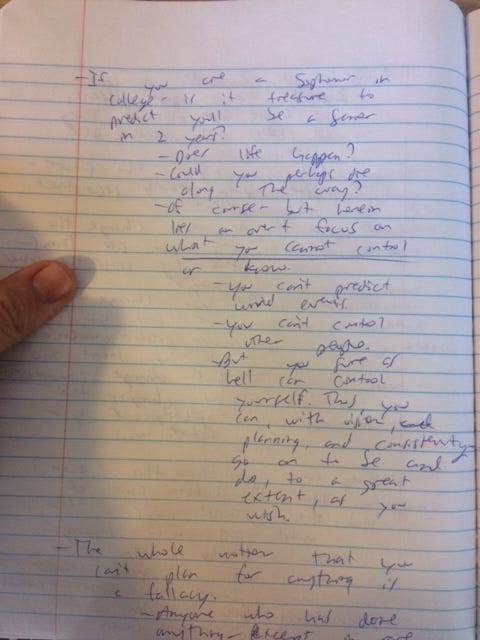 - If you are a Sophomore in
college - is it treasure to
predict you'll be a Senior
in 2 years?
- Does life happen?
- Could you perhaps die
along the way?
- Of course - but herein
lies an overt focus on
what you cannot control
or know.
- you can't predict
world events.
- you can't control
other people.
- But you sure as
hell can control
yourself. Thus, you
can, with vision,
planning, and consistency
go on to be and
do, to a great
extent, as you
wish.
- The whole notion that you
can't plan for anything is
a fallacy.
- Anyone who has done
anything - Except in